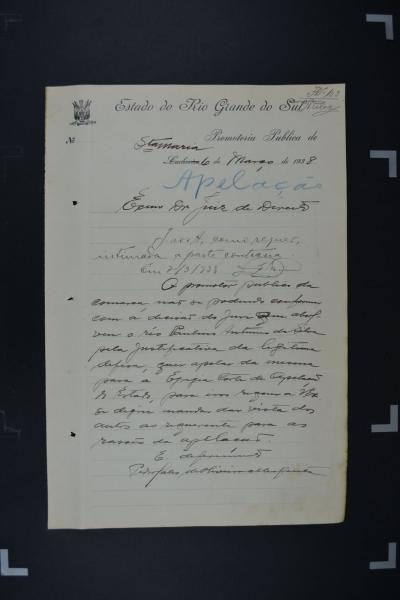 Estado do Rio Grande do Sul
Nº
Promotoria Publica de
Sta Maria
6 de Março de 1938
Apelação
Exmo Dr Juiz de Direito
J. aos A, como requer,
intimada a parte contraria.
Em 7/3/938
O promotor publico da
comarca não se podendo conformar
com a decisão do Juri que absol-
veu o réo Antonio da Silva
pela justificativa da legitima
defesa, quer apelar da mesma
para a Egregia Corte de Apelação
do Estado, para isso requer a V. Exa
se digne mandar dar vista dos
autos ao requerente para as
razões de apelação.
E. deferimento
de Oliveira